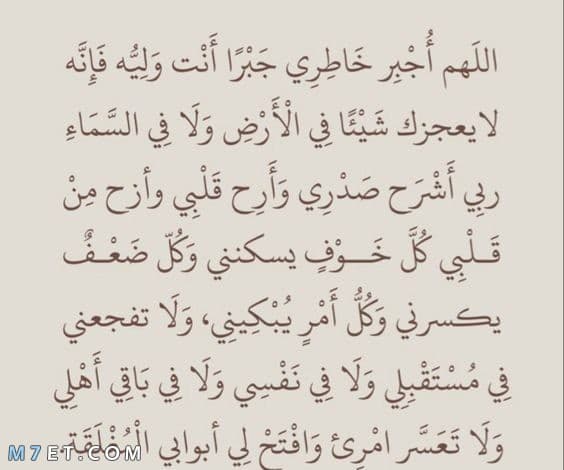 اللَهم أُجْبِر خَاطِرِي جَبْرًا أَنْت وَلِيُّه فَإِنَّه
لايعجزك شَيْئًا فِي الْأَرْضِ وَلَا فِي السَّمَاءِ
ربِي أَشْرَح صَدْرِي وَأَرِح قَلْبِي وأزح مِنْ
قَــلْبِي كُلَّ خَــوْفٍ يسكنني وَكُلّ ضَعْــفٌ
يكسرني وَكُلُّ أَمْرٍ يُبْكِينِي، وَلَا تفجعني
فِي مُسْتَقْبِلِي وَلَا فِي نَفْسِي وَلَا فِي بَاقِي أَهْلِي
وَلَا تَعَسَّر امْرِئ وَافْتَحْ لِي أبوابي الْمُغْلَقَة
M7ET.COM